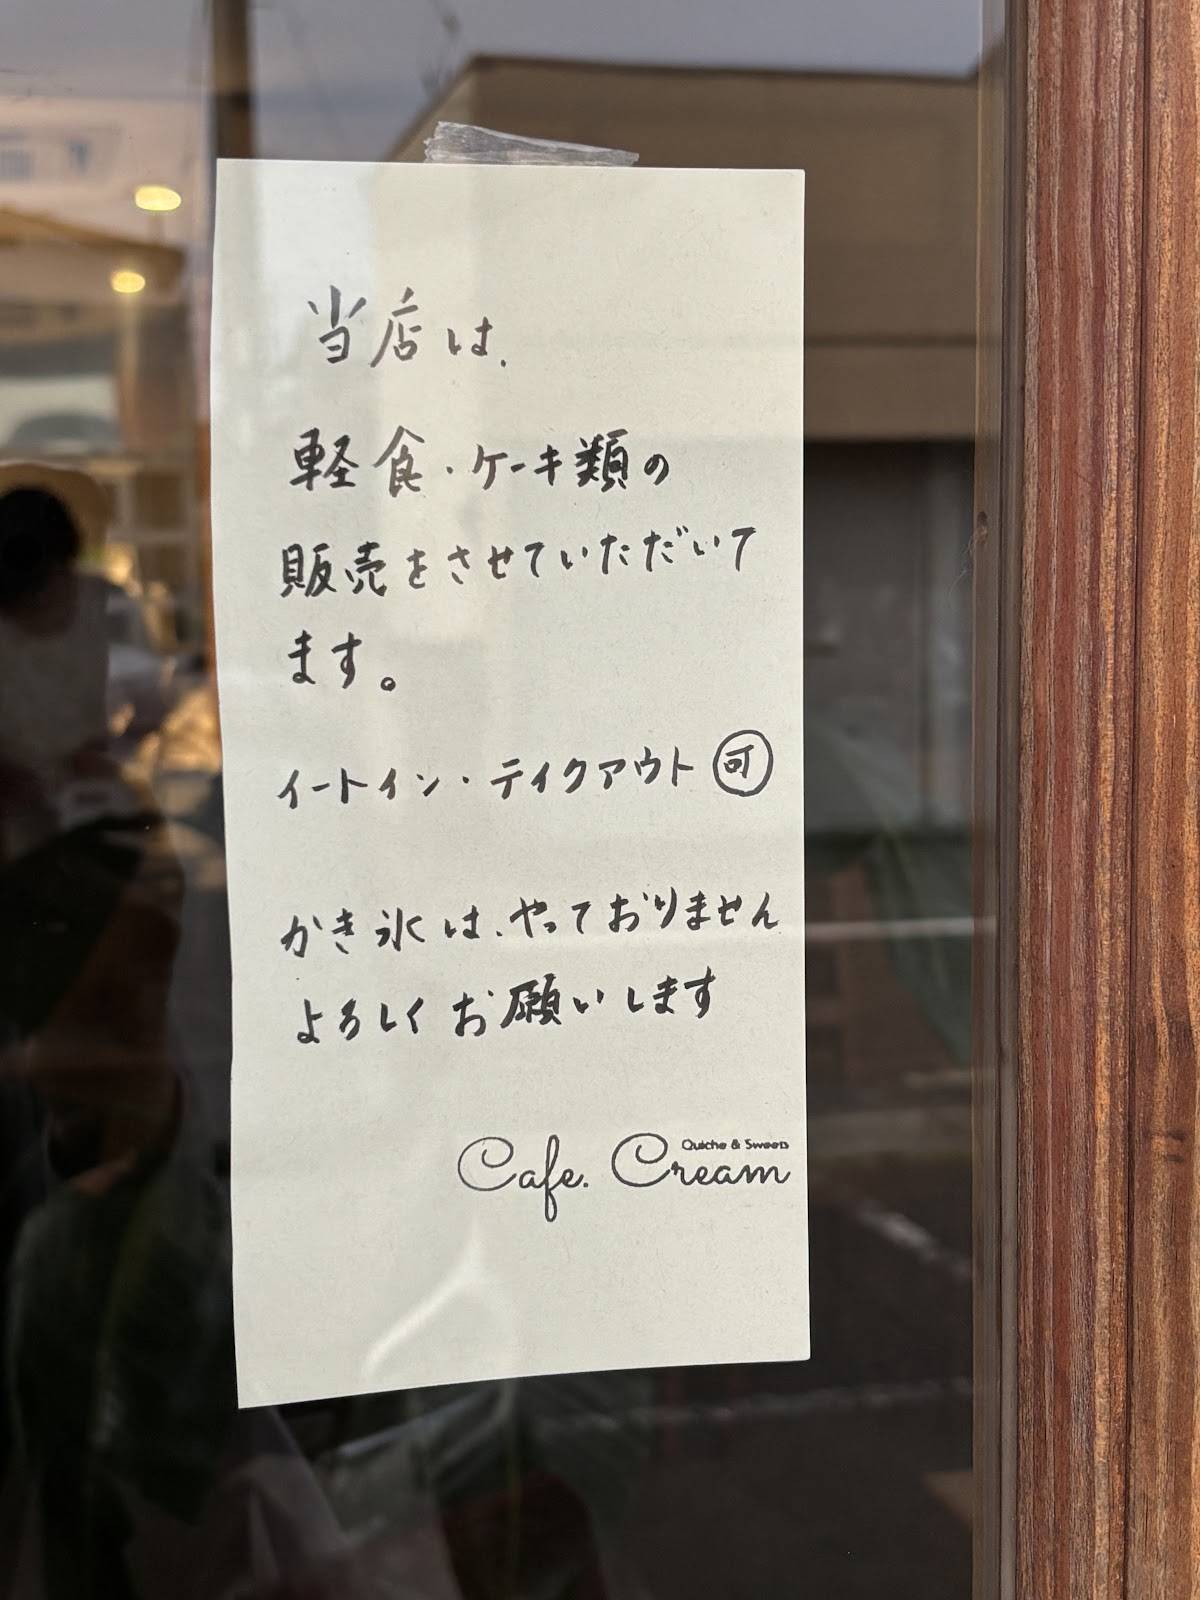 当店は、
軽食・ケーキ類の
販売をさせていただいて
ます。
イートイン・テイクアウト 可
かき氷は、やっておりません
よろしくお願いします
Quiche & Sweets
Cafe. Cream